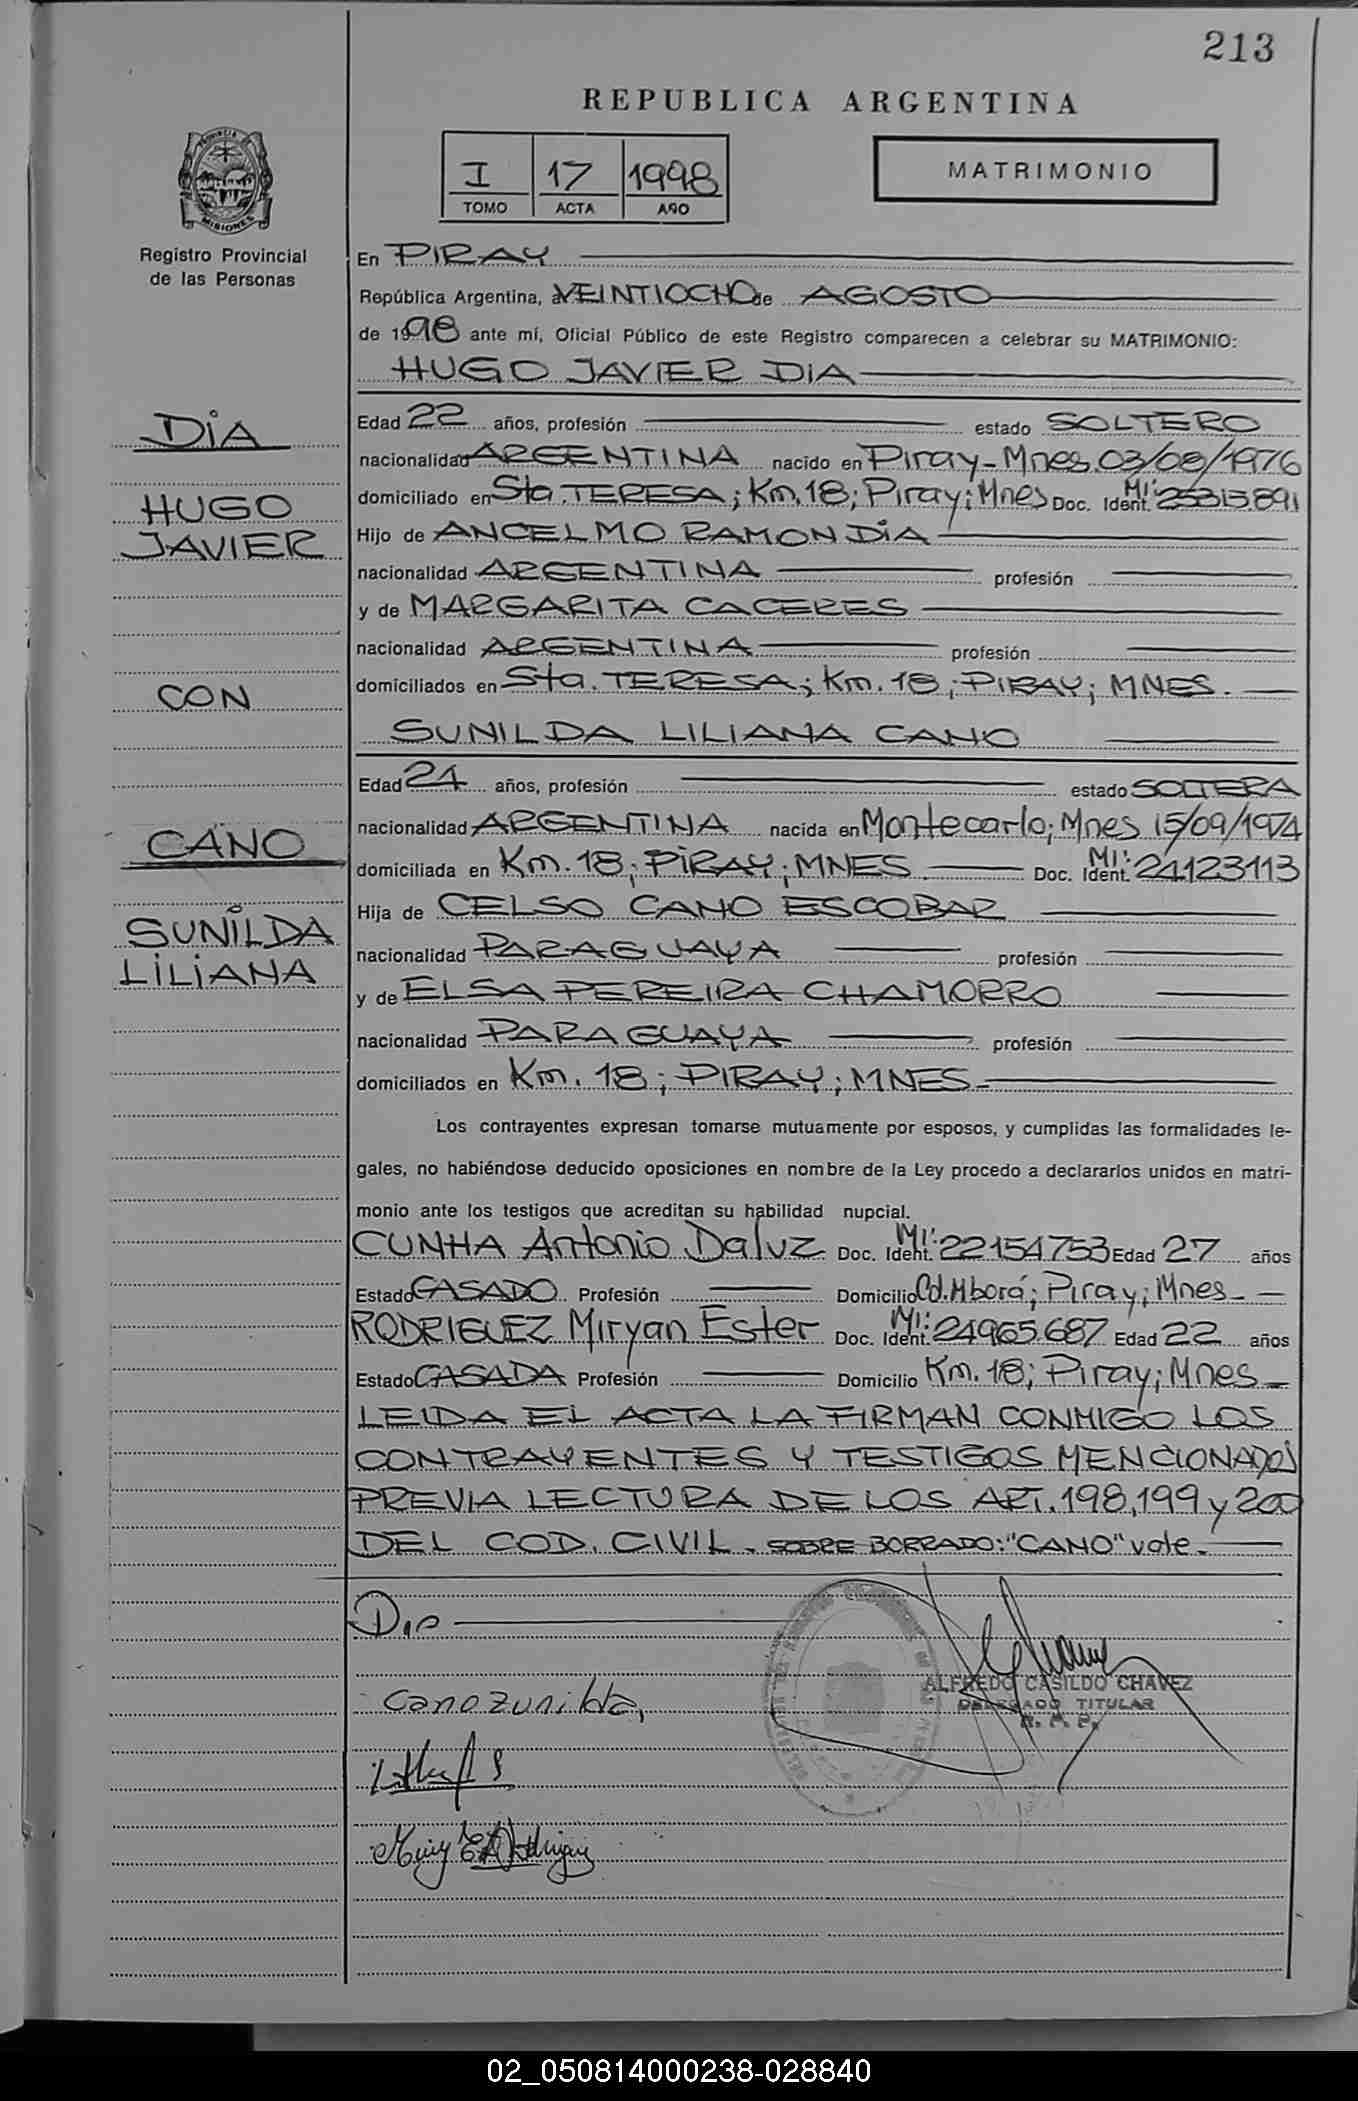 213
REPUBLICA ARGENTINA
I 17 1998
TOMO ACTA AÑO
MATRIMONIO
PROVINCIA
MISIONES
Registro Provincial
de las Personas
En PIRAY
República Argentina, a VEINTIOCHO de AGOSTO
de 1998 ante mí, Oficial Público de este Registro comparecen a celebrar su MATRIMONIO:
HUGO JAVIER DIA
DIA
HUGO
JAVIER
CON
CANO
SUNILDA
LILIANA
Edad 22 años, profesión estado SOLTERO
nacionalidad ARGENTINA nacido en Piray-Mnes. 03/08/1976
domiciliado en Sta. TERESA; Km. 18; Piray; Mnes Doc. Ident. MI: 25315.891
Hijo de ANCELMO RAMON DIA
nacionalidad ARGENTINA profesión
y de MARGARITA CACERES
nacionalidad ARGENTINA profesión
domiciliados en Sta. TERESA; Km. 18; PIRAY; MNES.
SUNILDA LILIANA CANO
Edad 24 años, profesión estado SOLTERA
nacionalidad ARGENTINA nacida en Montecarlo; Mnes 15/09/1974
domiciliada en Km. 18; PIRAY; MNES Doc. Ident. MI: 24.123113
Hija de CELSO CANO ESCOBAR
nacionalidad PARAGUAYA profesión
y de ELSA PEREIRA CHAMORRO
nacionalidad PARAGUAYA profesión
domiciliados en Km. 18; PIRAY; MNES
Los contrayentes expresan tomarse mutuamente por esposos, y cumplidas las formalidades le-
gales, no habiéndose deducido oposiciones en nombre de la Ley procedo a declararlos unidos en matri-
monio ante los testigos que acreditan su habilidad nupcial.
CUNHA Antonio Daluz Doc. Ident. MI: 22154753 Edad 27 años
Estado CASADO Profesión Domicilio Cd. Mborá; Piray; Mnes-
RODRIGUEZ Miryan Ester Doc. Ident. MI: 24965.687 Edad 22 años
Estado CASADA Profesión Domicilio Km. 18; Piray; Mnes-
LEIDA EL ACTA LA FIRMAN CONMIGO LOS
CONTRAYENTES Y TESTIGOS MENCIONADOS
PREVIA LECTURA DE LOS ART. 198, 199 y 200
DEL COD. CIVIL. SOBRE BORRADO: "CANO" vale.
Dia
Cano zunilda,
ALFREDO CASILDO CHAVEZ
DELEGADO TITULAR
R. P. P.
02_050814000238-028840